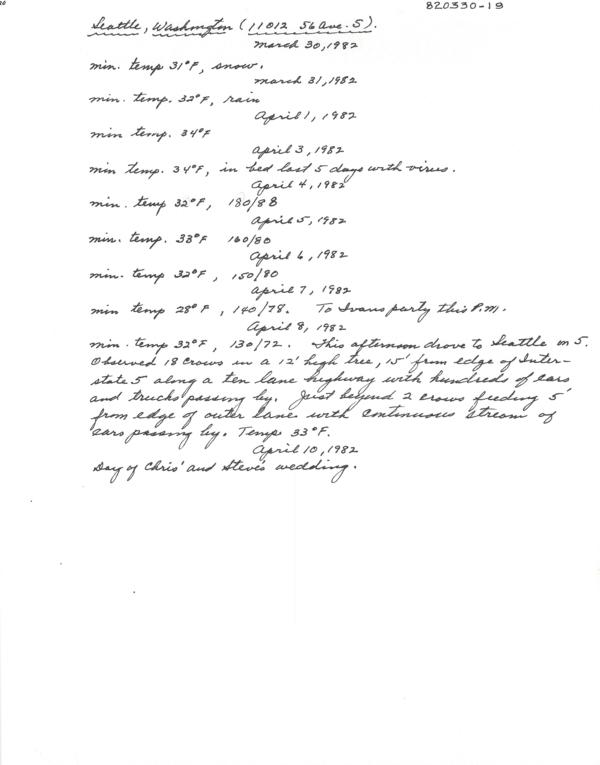 820330-19
Seattle, Washington (11012 56 Ave. S).
March 30, 1982
min. temp 31°F, snow.
March 31, 1982
min. temp. 32°F, rain
April 1, 1982
min temp. 34°F
April 3, 1982
min temp. 34°F, in bed last 5 days with virus.
April 4, 1982
min. temp 32°F, 180/88
April 5, 1982
min. temp. 33°F 160/80
April 6, 1982
min. temp 32°F, 150/80
April 7, 1982
min temp 28°F, 140/78. To Ivans party this P.M.
April 8, 1982
min. temp 32°F, 130/72. This afternoon drove to Seattle on 5.
Observed 18 crows in a 12' high tree, 15' from edge of Inter-
state 5 along a ten lane highway with hundreds of cars
and trucks passing by. Just beyond 2 crows feeding 5'
from edge of outer lane with continuous stream of
cars passing by. Temp 33°F.
April 10, 1982
Day of Chris' and Steve's wedding.